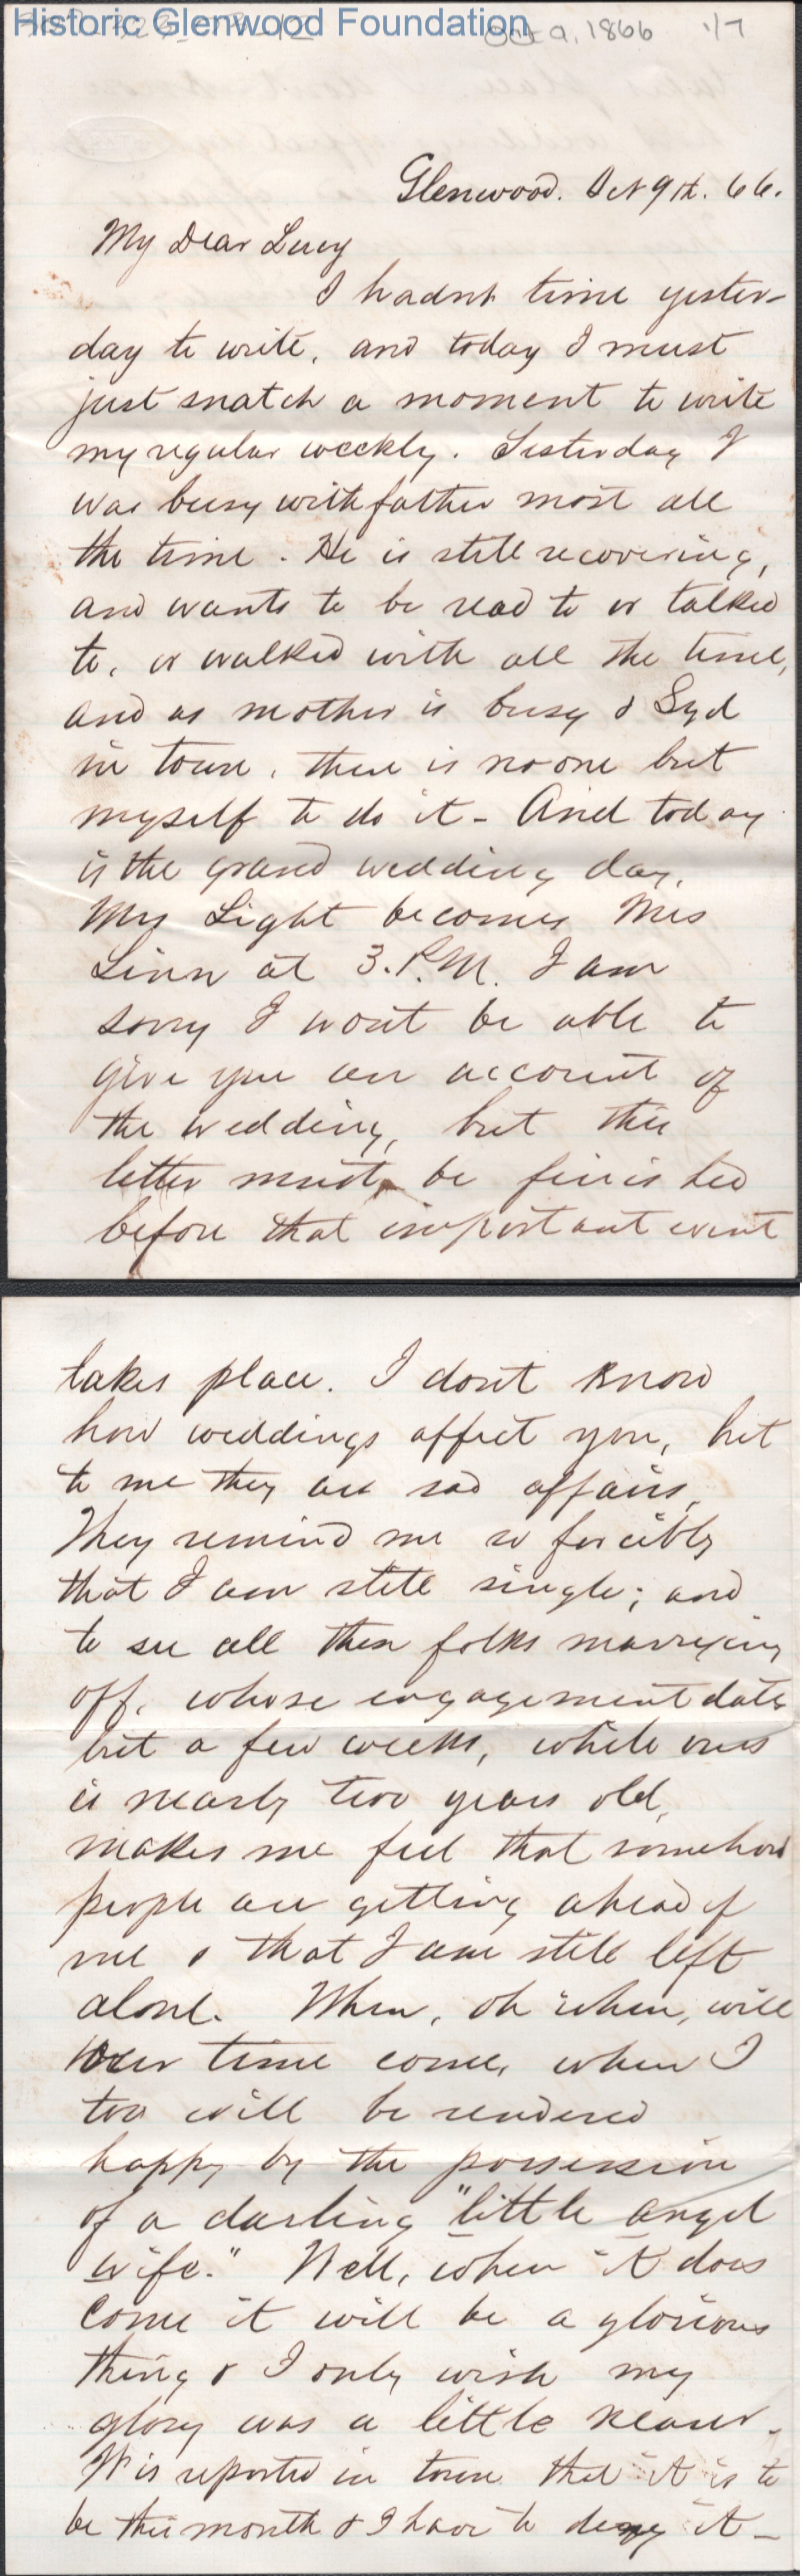 Historic Glenwood Foundation
Oct 9, 1866 1/7
Glenwood. Oct 9th. 66.
My Dear Lucy
I hadnt time yester-
day to write, and today I must
just snatch a moment to write
my regular weekly. Yesterday I
was busy with father most all
the time. He is still recovering,
and wants to be read to or talked
to, or walked with all the time,
and as mother is busy & Syd
in town, there is no one but
myself to do it - And today
is the grand wedding day.
Mrs Light becomes Mrs
Linn at 3. P.M. I am
sorry I wont be able to
give you an account of
the wedding, but this
letter must be finished
before that important event
takes place. I dont know
how weddings affect you, but
to me they are sad affairs.
They remind me so forcibly
that I am still single; and
to see all these folks marrying
off, whose engagement dates
but a few weeks, while ours
is nearly two years old,
makes me feel that somehow
people are getting ahead of
me & that I am still left
alone. When, oh when, will
our time come, when I
too will be rendered
happy by the possession
of a darling "little angel
wife." Well, when it does
come it will be a glorious
thing & I only wish my
glory was a little nearer.
It is reported in town that it is to
be this month & I have to deny it -